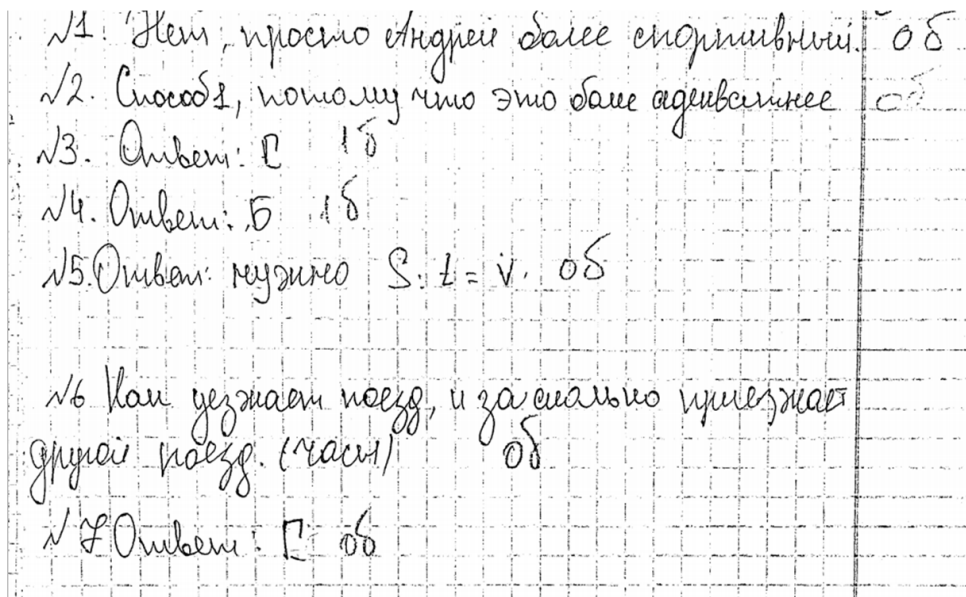 №1. Нет, просто Андрей более спортивный. 0б
№2. Способ 1, потому что это боле адекватнее 0б
№3. Ответ: С 1б
№4. Ответ: Б 1б
№5. Ответ: нужно S : t = v. 0б
№6 Как уезжает поезд, и за сколько приезжает
другой поезд. (часы) 0б
№7 Ответ: С 0б